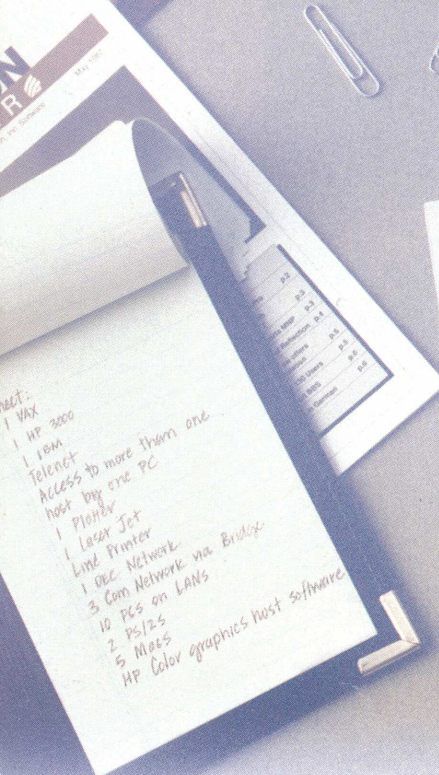 N
R
May 1987
Inc. Software
p.2
p.3
MNP p.3
Reflection p.4
p.5
Users p.5
BBS p.6
German p.6
nect:
1 VAX
1 HP 3000
1 IBM
Telenet
Access to more than one
host by one PC
1 Plotter
1 Laser Jet
Line Printer
1 DEC Network
3 Com Network via Bridge
10 PCs on LANs
2 PS/2s
5 Macs
HP Color graphics host software